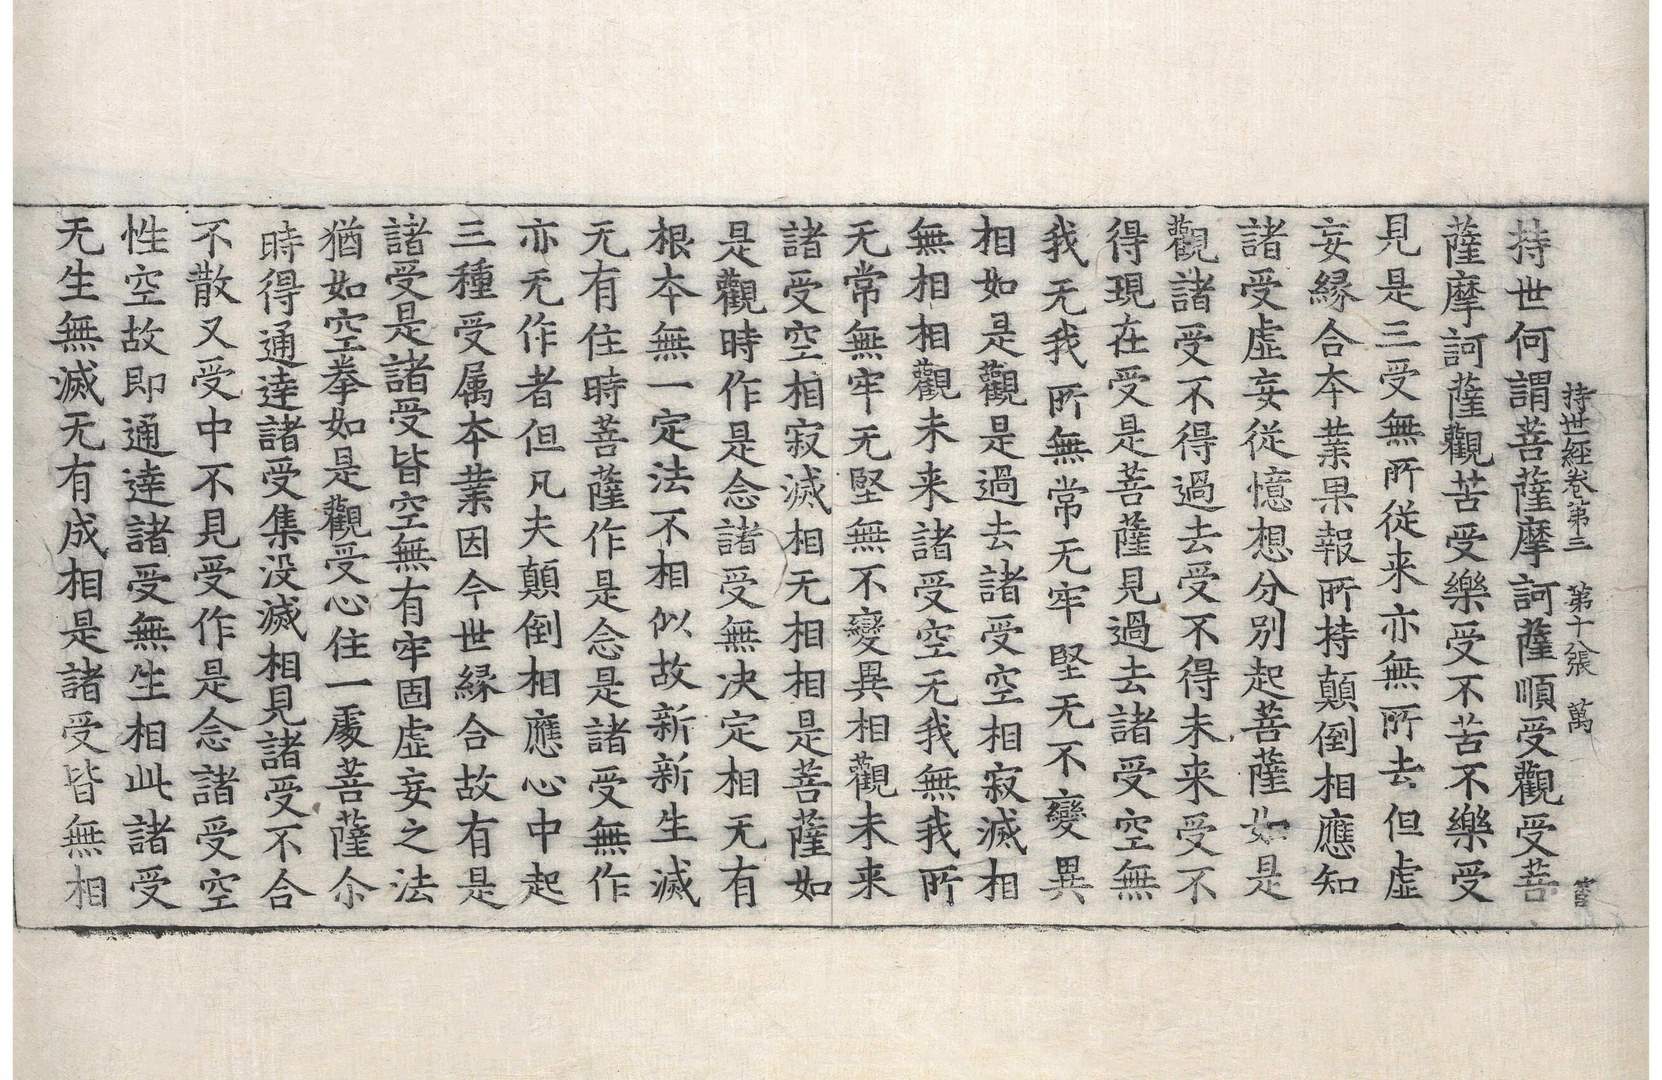 持世經卷第三　第十八張　萬
持世何謂菩薩摩訶薩順受觀受菩
薩摩訶薩觀苦受樂受不苦不樂受
見是三受無所從来亦無所去但虛
妄緣合本業果報所持顛倒相應知
諸受虛妄從憶想分別起菩薩如是
觀諸受不得過去受不得未来受不
得現在受是菩薩見過去諸受空無
我无我所無常无牢堅无不變異
相如是觀是過去諸受空相寂滅相
無相相觀未来諸受空无我無我所
无常無牢无堅無不變異相觀未来
諸受空相寂滅相无相相是菩薩如
是觀時作是念諸受無决定相无有
根本無一定法不相似故新新生滅
无有住時菩薩作是念是諸受無作
亦无作者但凡夫顛倒相應心中起
三種受属本業因今世緣合故有是
諸受是諸受皆空無有牢固虛妄之法
猶如空拳如是觀受心住一處菩薩尒
時得通達諸受集没滅相見諸受不合
不散又受中不見受作是念諸受空
性空故即通達諸受無生相此諸受
无生無滅无有成相是諸受皆無相